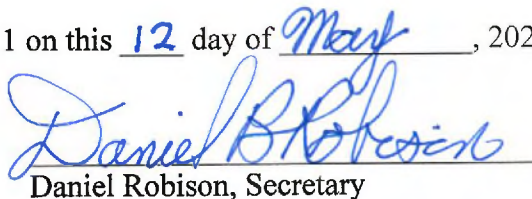 1 on this 12 day of May, 202
Daniel B Robison
Daniel Robison, Secretary